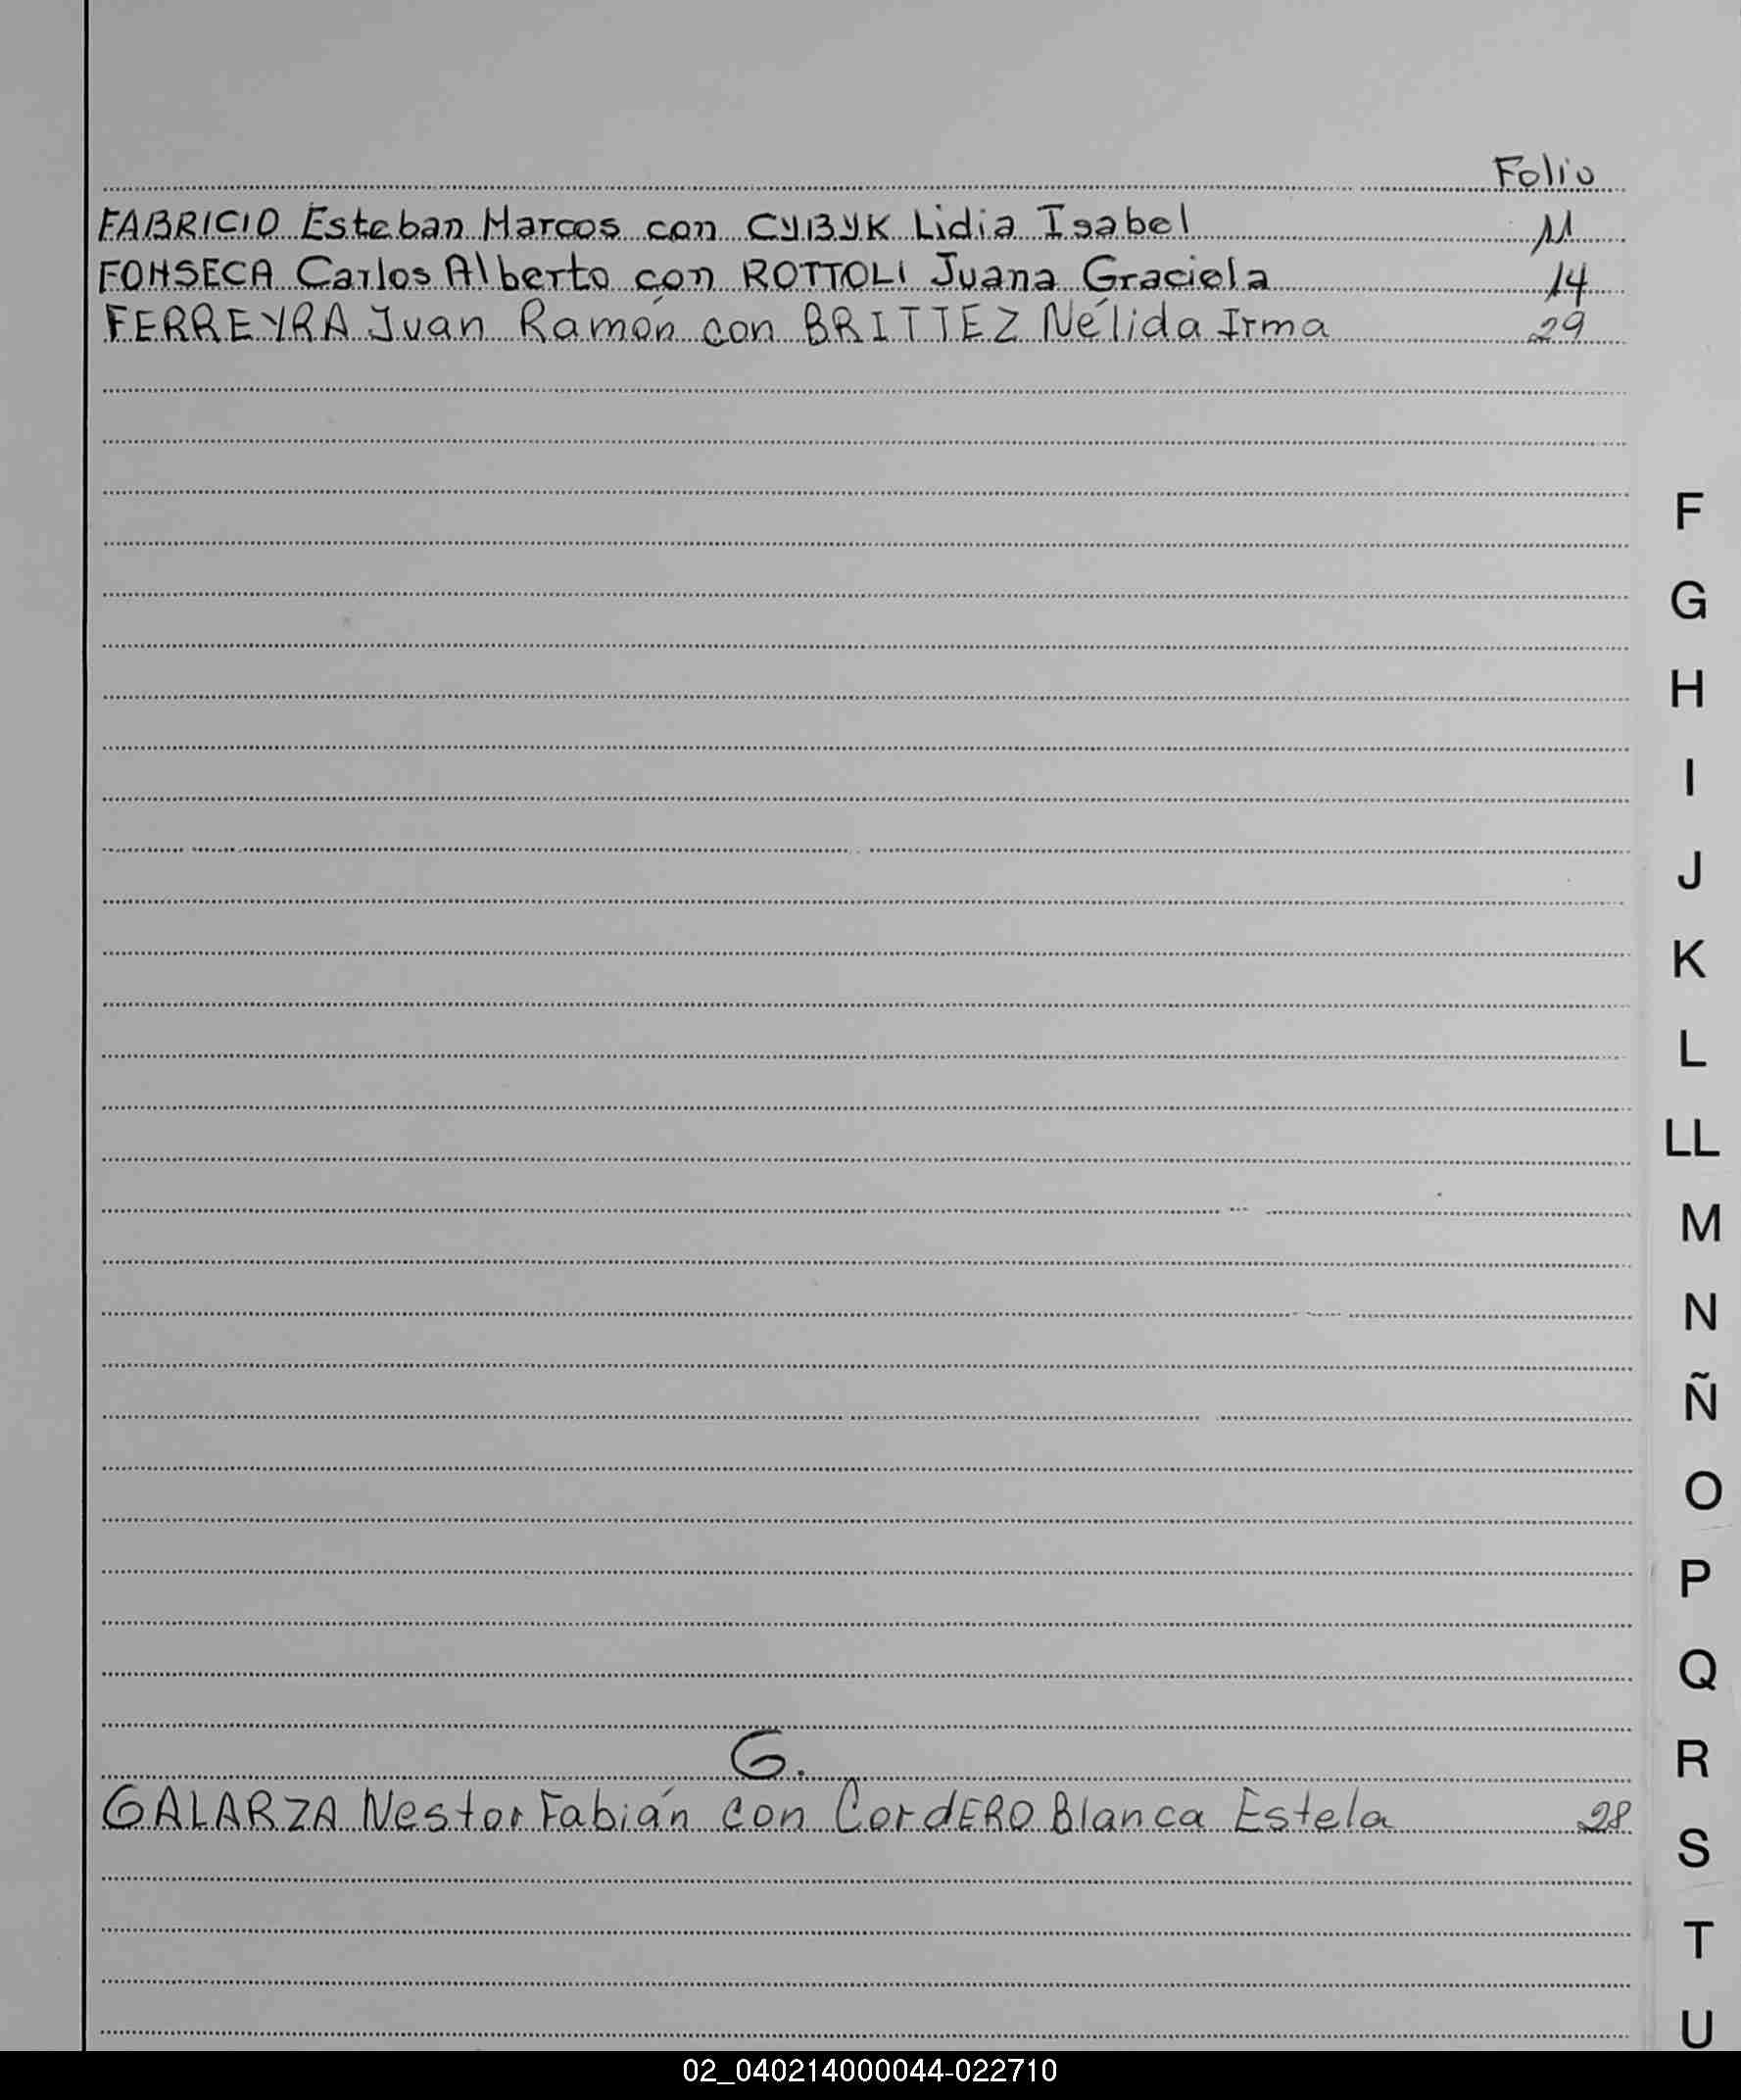 Folio
FABRICIO Esteban Marcos con CYBYK Lidia Isabel 11
FONSECA Carlos Alberto con ROTTOLI Juana Graciela 14
FERREYRA Juan Ramón con BRITTEZ Nélida Irma 29
F
G
H
I
J
K
L
LL
M
N
Ñ
O
P
Q
G.
R
GALARZA Nestor Fabián con CordERO Blanca Estela 28
S
T
U
02_040214000044-022710